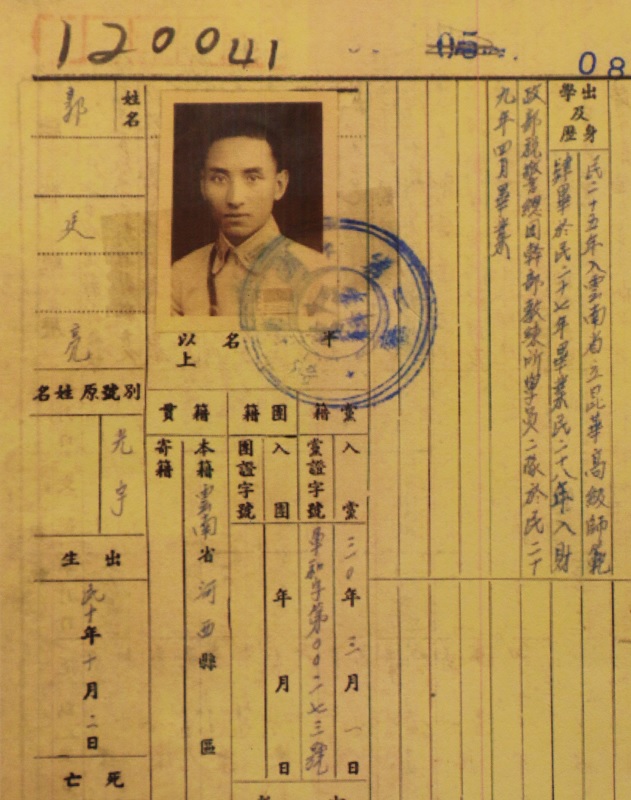 120041
05
08
出身及學歷
民二十五年入雲南省立昆華高級師範
肄畢於民二十七年畢業民二十八年入財
政部稅警總團幹部教練所學員二隊於民二十
九年四月畢業
姓名
郭廷亮
以上
名
年
別號原姓名
光宇
出生
民十年十月二日
死亡
籍貫
本籍雲南省河西縣 區
寄籍
團籍
入團 年 月 日
團證字號
黨籍
入黨 三〇年三月一日
黨證字號 軍和字第00二七三號